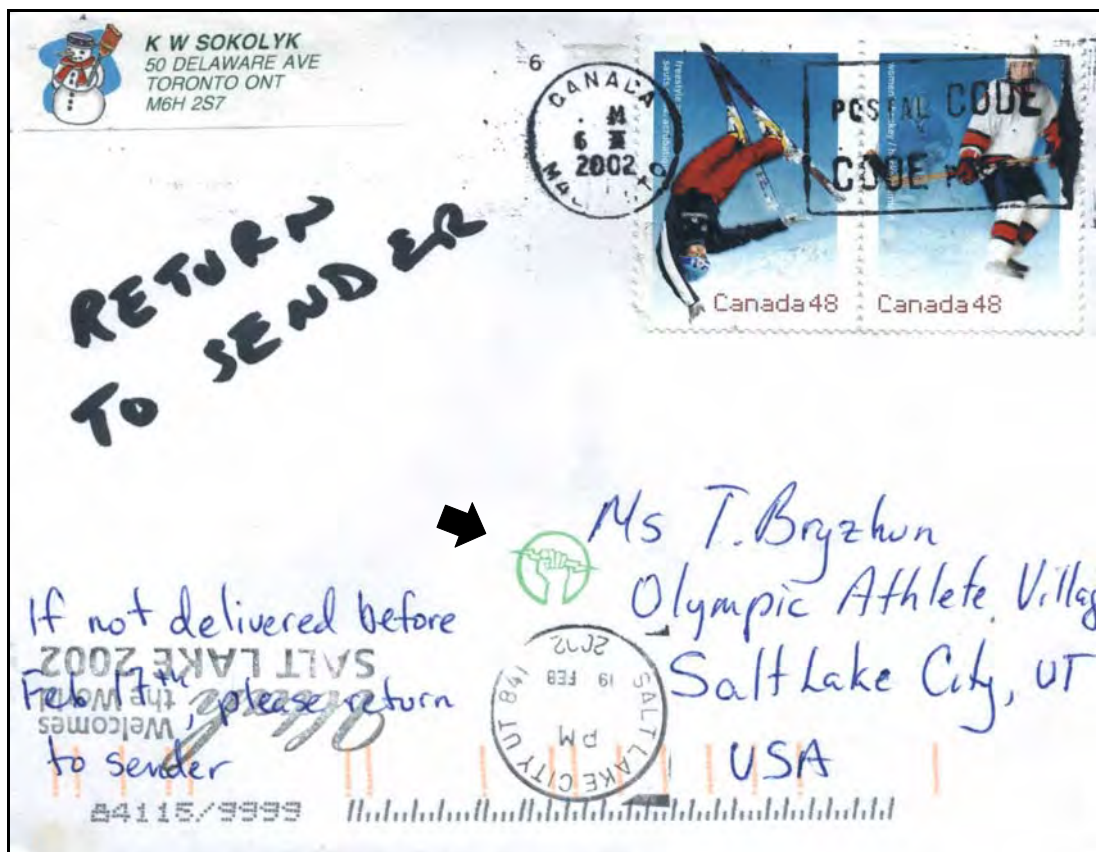 K W SOKOLYK
50 DELAWARE AVE
TORONTO ONT
M6H 2S7
6
CANADA
M
6
2002
M4
TO
POSTAL CODE
CODE
freestyle
women hockey
Canada 48
Canada 48
RETURN
TO SENDER
Ms T. Bryzhun
Olympic Athlete Villag
Salt Lake City, UT
USA
If not delivered before
Feb 17th, please return
to sender
SALT LAKE 2002
Welcomes
the World
SALT LAKE CITY UT 841
PM
19 FEB
2002
84115/9999